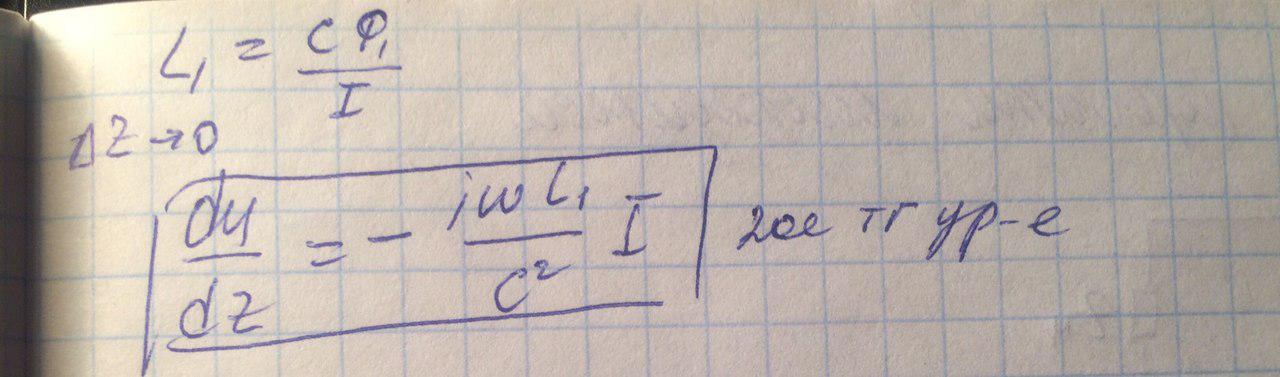 L₁ = cΦ₁/I
ΔZ→0
du/dz = - iωL₁/c² I 2ое тг ур-е